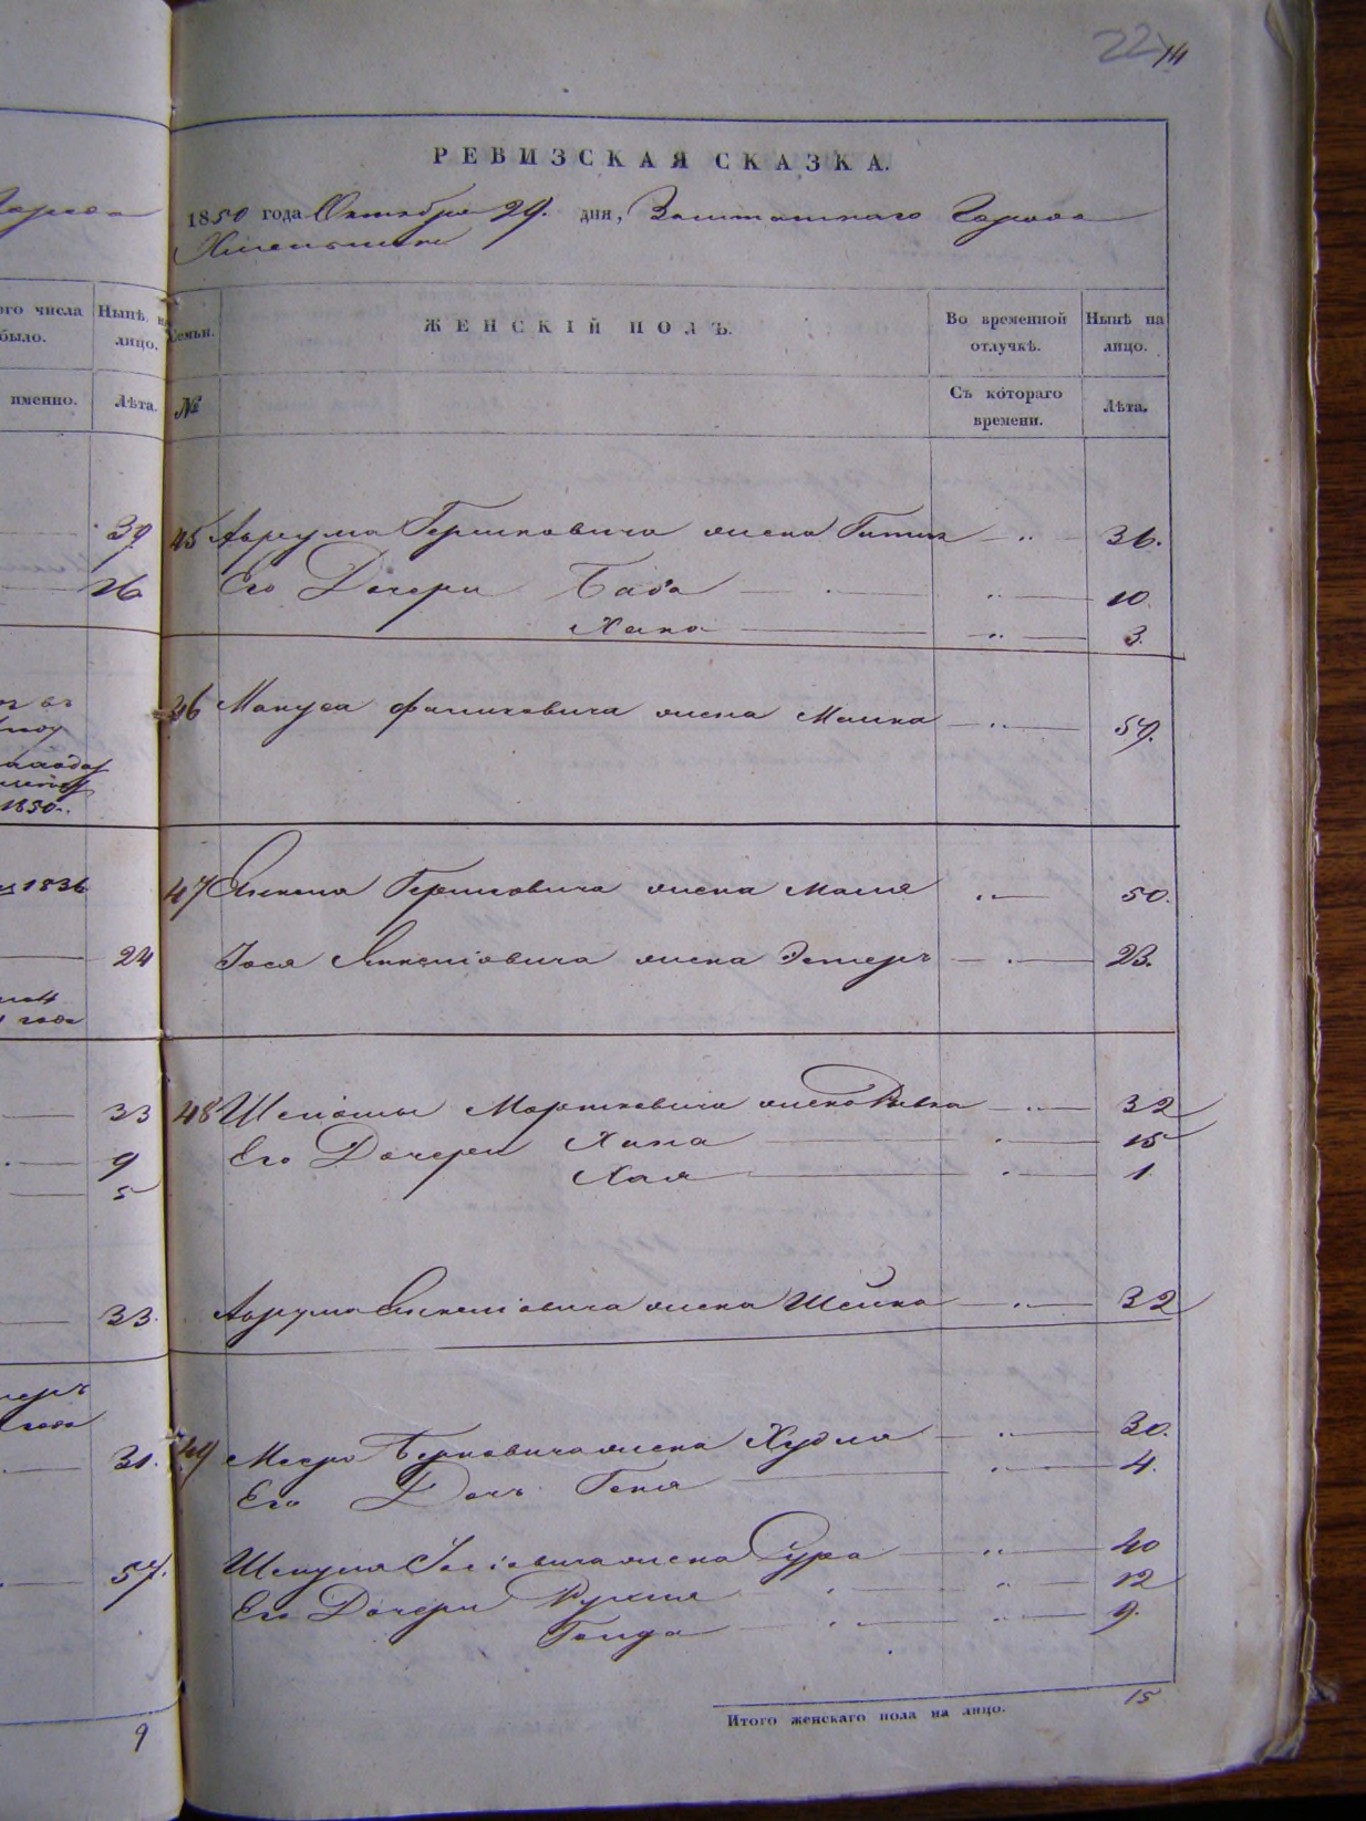 22 14
РЕВИЗСКАЯ СКАЗКА.
1850 года Октября 29. дня, Заштатнаго Города
Хмельника
ого числа было.
Нынѣ на лицо.
Семьи.
ЖЕНСКІЙ ПОЛЪ.
Во временной отлучкѣ.
Нынѣ на лицо.
именно.
Лѣта.
№
Съ котораго времени.
Лѣта.
39
45 Аврума Гершковича жена Гитля 36.
26
Его Дочери Баба 10.
Хана 3.
46 Мануса жена Малка 59.
1850.
1836
47 Янкеля Гершковича жена Маля 50.
24
Іося Янкелiовича жена Эстеръ 23.
года
33
48 Шліомы Мортковича жена Ривка 32
9
Его Дочери Хана 15
5
Хая 1.
33.
Аврума Янкелiовича жена Шейна 32
31.
49 Меера Берковича жена Худля 30.
Его Дочь Геня 4.
57.
Шмуля Іосіовича жена Сура 40
Его Дочери Рухля 12
Голда 9.
Итого женскаго пола на лицо. 15
9